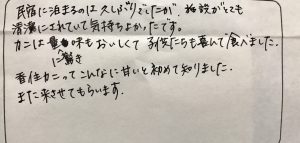 民宿に泊まるのは久しぶりでしたが、施設がとても
清潔にされていて気持ちよかったです。
カニは味もおいしくて子供たちも喜んで食べました。
に驚き
香住カニってこんなに甘いと初めて知りました。
また来させてもらいます。